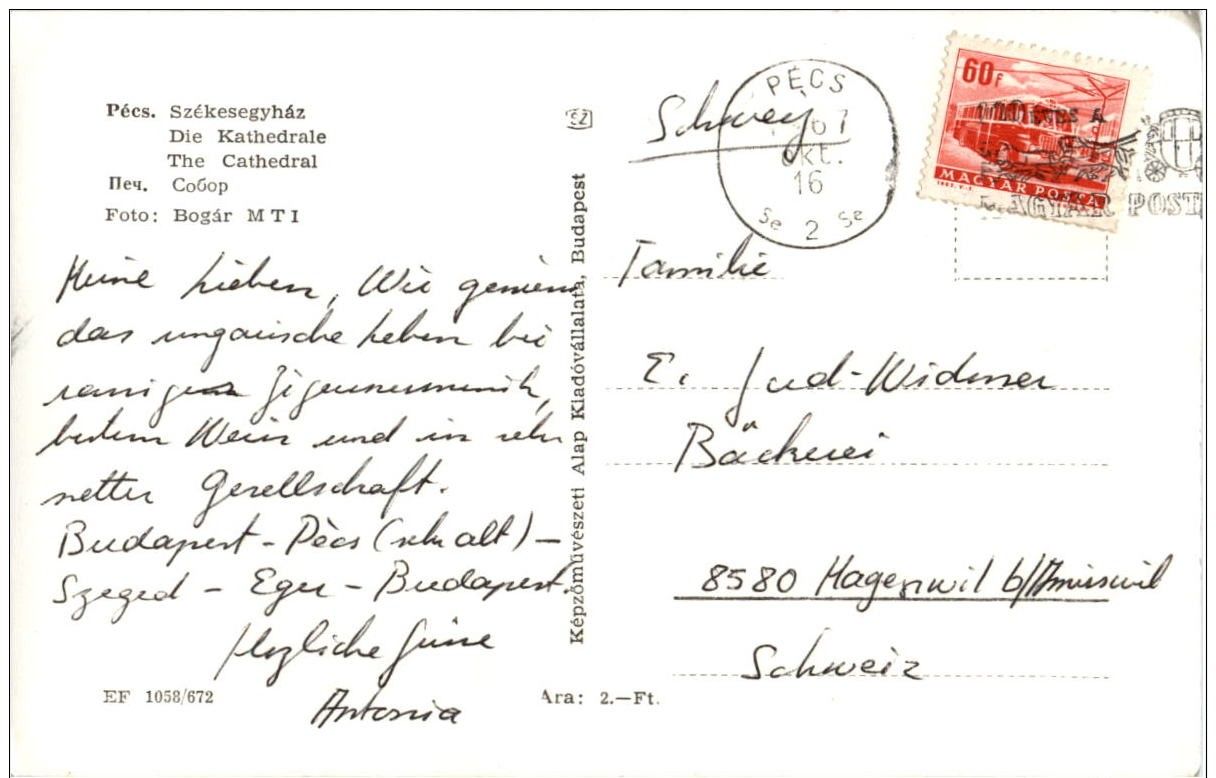 Pécs. Székesegyház
Die Kathedrale
The Cathedral
Печ. Собор
Foto: Bogár MTI
Meine Lieben, Wir geniessen
das ungarische Leben bei
Zigeunermusik,
bestem Wein und in sehr
netter Gesellschaft.
Budapest - Pècs (sehr alt) -
Szeged - Eger - Budapest.
Herzliche Grüsse
Antonia
EF 1058/672
Képzőművészeti Alap Kiadóvállalata, Budapest
Ára: 2.—Ft.
PÉCS
67
okt.
16
2
60f
MAGYAR POSTA
100 ÉVES A
MAGYAR POST
Familie
E. Jud-Widmer
Bäckerei
8580 Hagenwil b/Amriswil
Schweiz